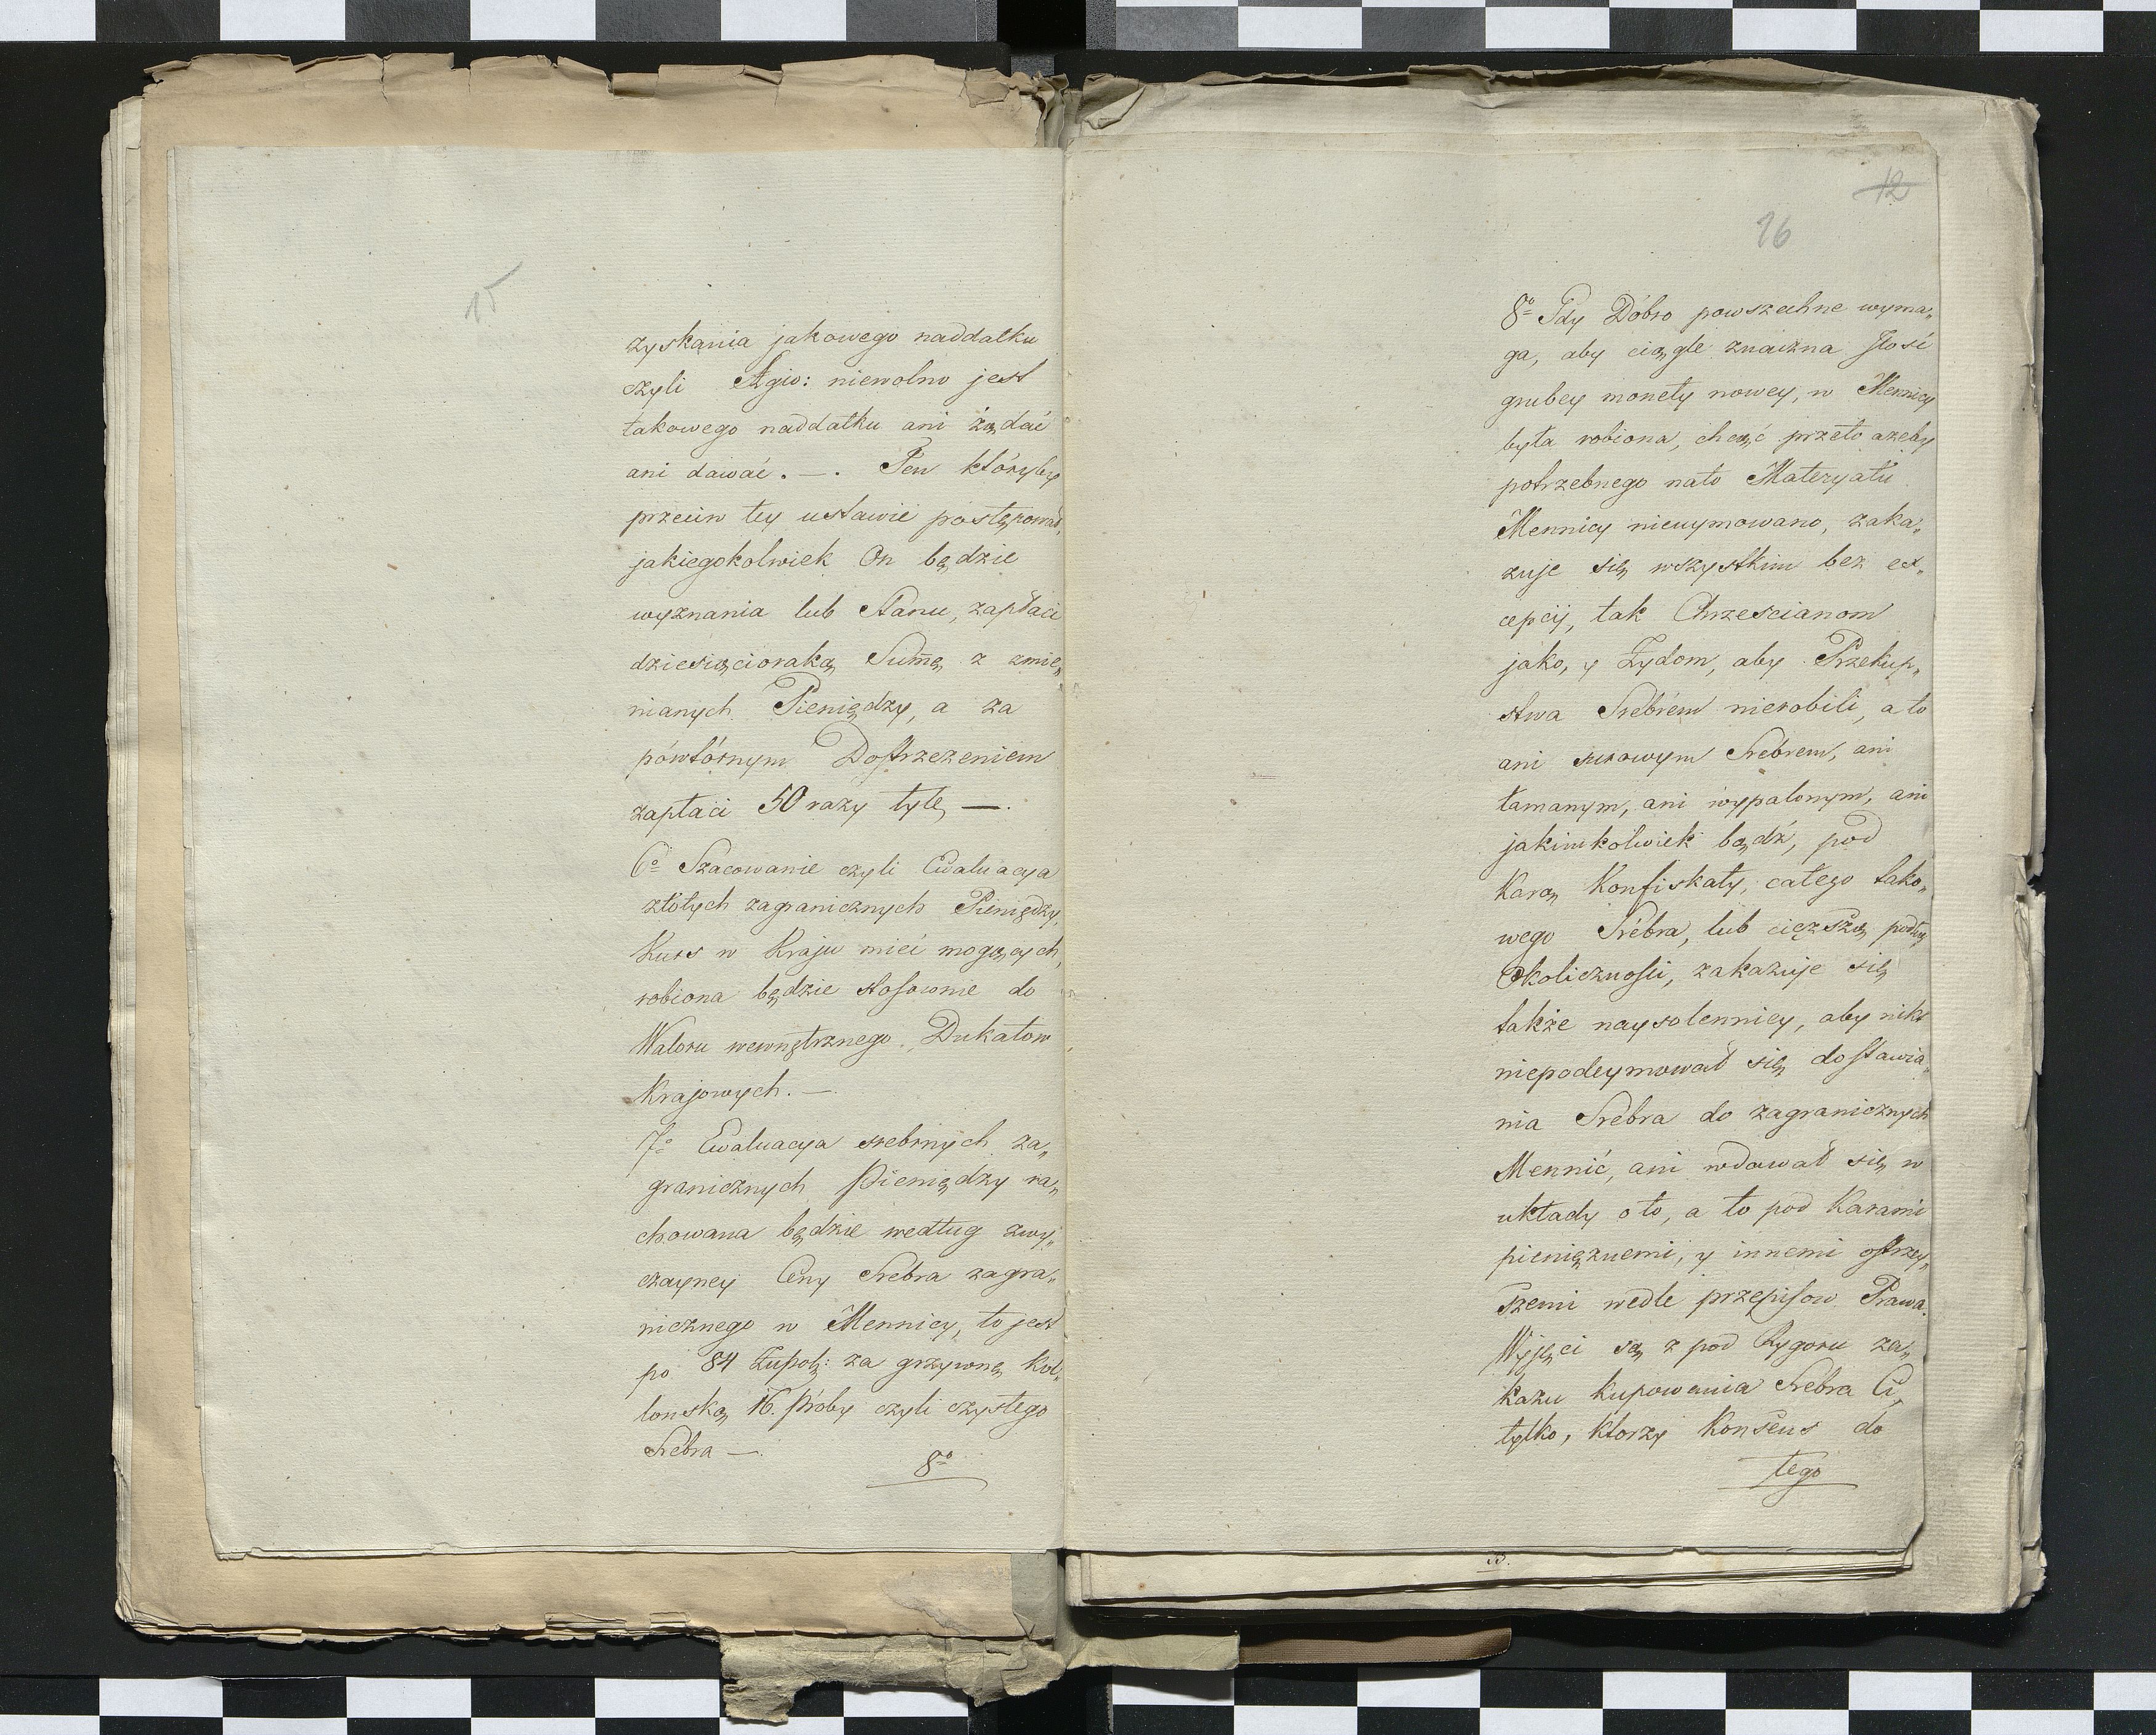 15
zyskania jakowego naddatku
czyli Agio: niewolno jest
takowego naddatku ani żądać
ani dawać. —. Ten któryby
przeciw tey ustawie postępował,
jakiegokolwiek On będzie
wyznania lub Stanu, zapłaci
dziesięcioraką Sum̄ę z zmie„
nianych Pieniędzy, a za
pówtórnym Dostrzeżeniem
zapłaci 50 razy tyle —.
6o Szacowanie czyli Ewaluacya
złótych zagranicznych Pieniędzy,
Kurs w Kraju mieć mogących,
robiona będzie stosownie do
Waloru wewnętrznego Dukatow
Krajowych. —
7o Ewaluacya srebrnych za„
granicznych Pieniędzy ra„
chowana będzie według zwy„
czayney Ceny Srebra zagra„
nicznego w Mennicy, to jest
po 84 Złłpol: za grzywnę kol„
lonską 16. Próby czyli czystego
Srebra —.
8o
12
16
8o Gdy Dobro powszechne wyma„
ga, aby ciągle znaczna Ilość
grubey monety nowey, w Mennicy
była robiona, chcąć przeto azeby
potrzebnego nato Materyału
Mennicy nieuymowano, zaka„
zuje się wszystkim bez ex„
cepcij, tak Chrzescianom
jako, y Zydom, aby Przekup„
stwa Srebrem nierobili, a to
ani surowym Srebrem, ani
łamanym, ani wypalonym, ani
jakimkolwiek bądź, pod
Karą Konfiskaty, całego tako„
wego Srebra, lub cięższą podług
Okolicznosci, zakazuje się
także naysolenniey, aby nikt
niepodeymował się dostawia„
nia Srebra do zagranicznych
Mennić, ani wdawał się w
układy o to, a to pod Karami
pieniężnemi, y innemi ostrzey„
szemi wedle przepisow Prawa.
Wyjęci są z pod Rygoru za„
kazu kupowania Srebra Ci,
tylko, ktorzy Konsens do
tego